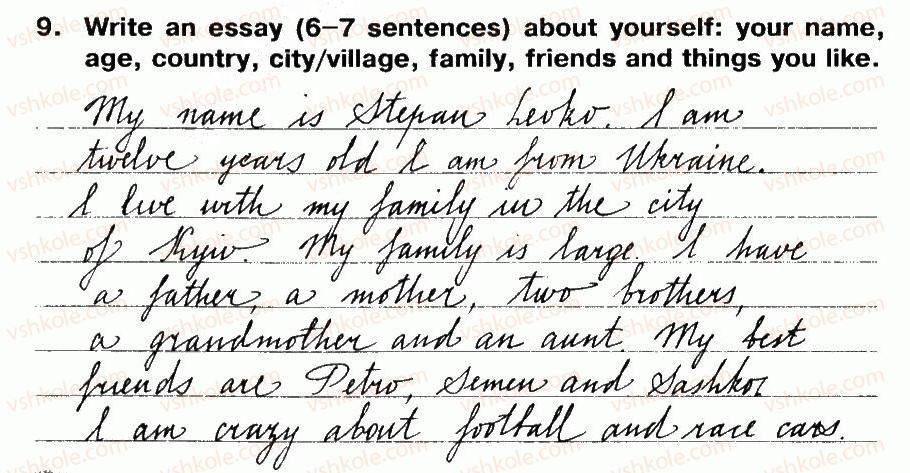 9. Write an essay (6–7 sentences) about yourself: your name,
age, country, city/village, family, friends and things you like.
My name is Stepan Levko. I am
twelve years old I am from Ukraine.
I live with my family in the city
of Kyiv. My family is large. I have
a father, a mother, two brothers,
a grandmother and an aunt. My best
friends are Petro, Semen and Sashko.
I am crazy about football and race cars.